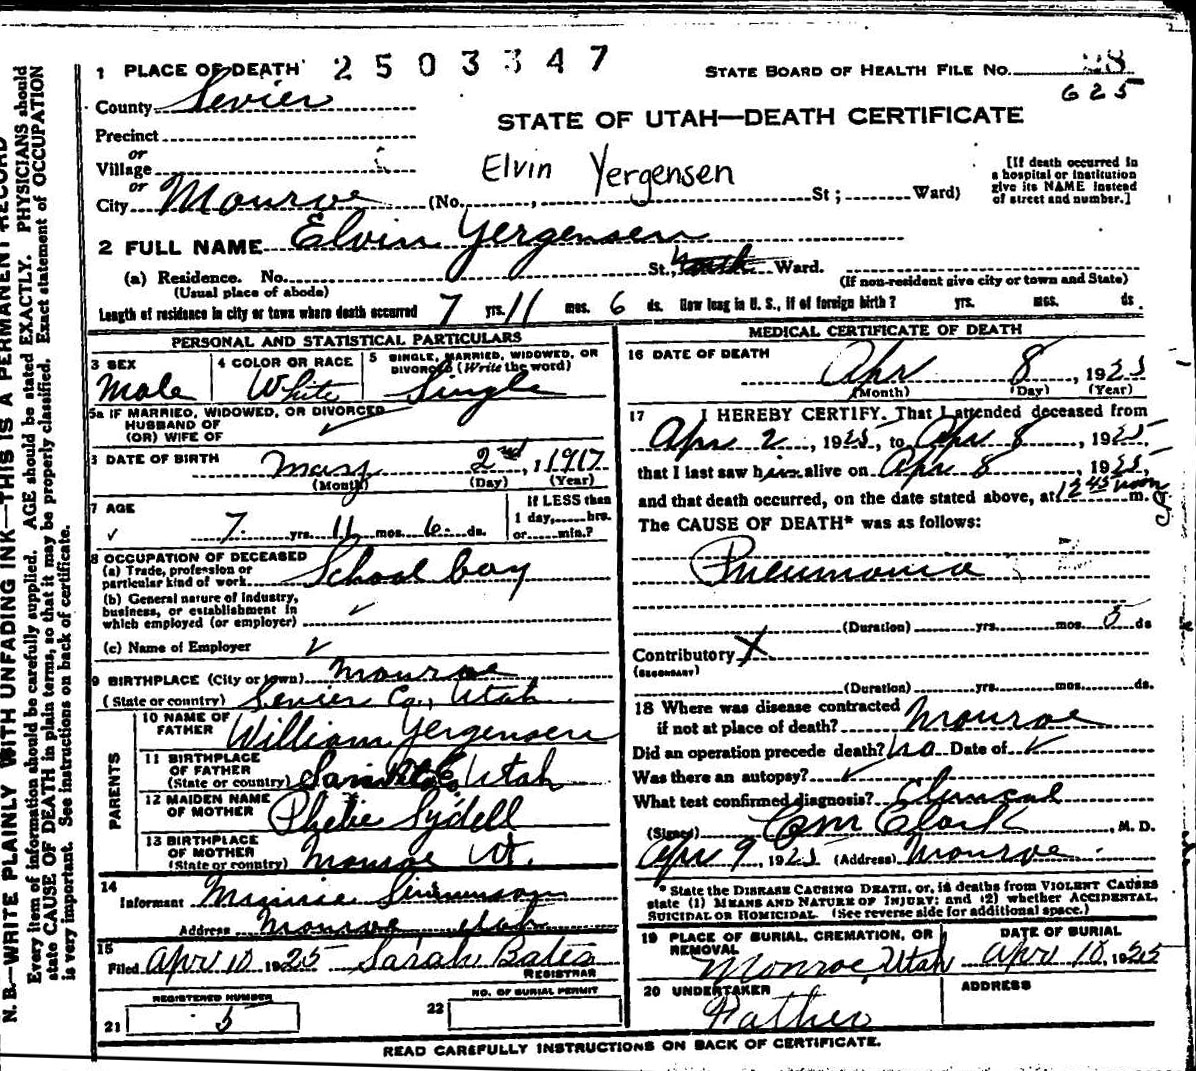 1 PLACE OF DEATH 2503347 STATE BOARD OF HEALTH FILE NO. 28
County Sevier 625
STATE OF UTAH—DEATH CERTIFICATE
Precinct
or
Village
Elvin Yergensen
[If death occurred in
a hospital or institution
give its NAME instead
of street and number.]
or
City Monroe (No. , St; Ward)
2 FULL NAME Elvin Yergensen
(a) Residence. No. St., Ward.
(Usual place of abode) (If non-resident give city or town and State)
Length of residence in city or town where death occurred 7 yrs. 11 mos. 6 ds. How long in U. S., if of foreign birth? yrs. mos. ds.
PERSONAL AND STATISTICAL PARTICULARS
3 SEX 4 COLOR OR RACE 5 SINGLE, MARRIED, WIDOWED, OR
DIVORCED (Write the word)
Male White Single
5a IF MARRIED, WIDOWED, OR DIVORCED
HUSBAND OF
(OR) WIFE OF
DATE OF BIRTH May 2nd, 1917
(Month) (Day) (Year)
7 AGE If LESS than
1 day, hrs.
7 yrs. 11 mos. 6 ds. or min.?
8 OCCUPATION OF DECEASED
(a) Trade, profession or
particular kind of work School boy
(b) General nature of industry,
business, or establishment in
which employed (or employer)
(c) Name of Employer
9 BIRTHPLACE (City or town) Monroe
(State or country) Sevier Co., Utah
PARENTS
10 NAME OF
FATHER William Yergensen
11 BIRTHPLACE
OF FATHER
(State or country) Utah
12 MAIDEN NAME
OF MOTHER Phebe Sydell
13 BIRTHPLACE
OF MOTHER
(State or country) Monroe Ut.
14
Informant Minnie Simmenson
Address Monroe Utah
15
Filed Apr 10 1925 Sarah Bates
REGISTRAR
REGISTERED NUMBER NO. OF BURIAL PERMIT
21 5 22
MEDICAL CERTIFICATE OF DEATH
16 DATE OF DEATH
Apr 8, 1925
(Month) (Day) (Year)
17 I HEREBY CERTIFY, That I attended deceased from
Apr 2, 1925, to Apr 8, 1925
that I last saw him alive on Apr 8, 1925,
and that death occurred, on the date stated above, at 12 45 noon m.
The CAUSE OF DEATH* was as follows:
Pneumonia
(Duration) yrs. mos. 5 ds
Contributory X
(SECONDARY)
(Duration) yrs. mos. ds.
18 Where was disease contracted
if not at place of death? Monroe
Did an operation precede death? no Date of
Was there an autopsy?
What test confirmed diagnosis? Clinical
(Signed) Clark, M. D.
Apr 9, 1925 (Address) Monroe
* State the DISEASE CAUSING DEATH, or, in deaths from VIOLENT CAUSES
state (1) MEANS AND NATURE OF INJURY; and (2) whether ACCIDENTAL,
SUICIDAL OR HOMICIDAL. (See reverse side for additional space.)
19 PLACE OF BURIAL, CREMATION, OR DATE OF BURIAL
REMOVAL
Monroe, Utah Apr 10, 1925
20 UNDERTAKER ADDRESS
Father
READ CAREFULLY INSTRUCTIONS ON BACK OF CERTIFICATE.
N. B.—WRITE PLAINLY WITH UNFADING INK—THIS IS A PERMANENT RECORD
Every item of information should be carefully supplied. AGE should be stated EXACTLY. PHYSICIANS should
state CAUSE OF DEATH in plain terms, so that it may be properly classified. Exact statement of OCCUPATION
is very important. See instructions on back of certificate.